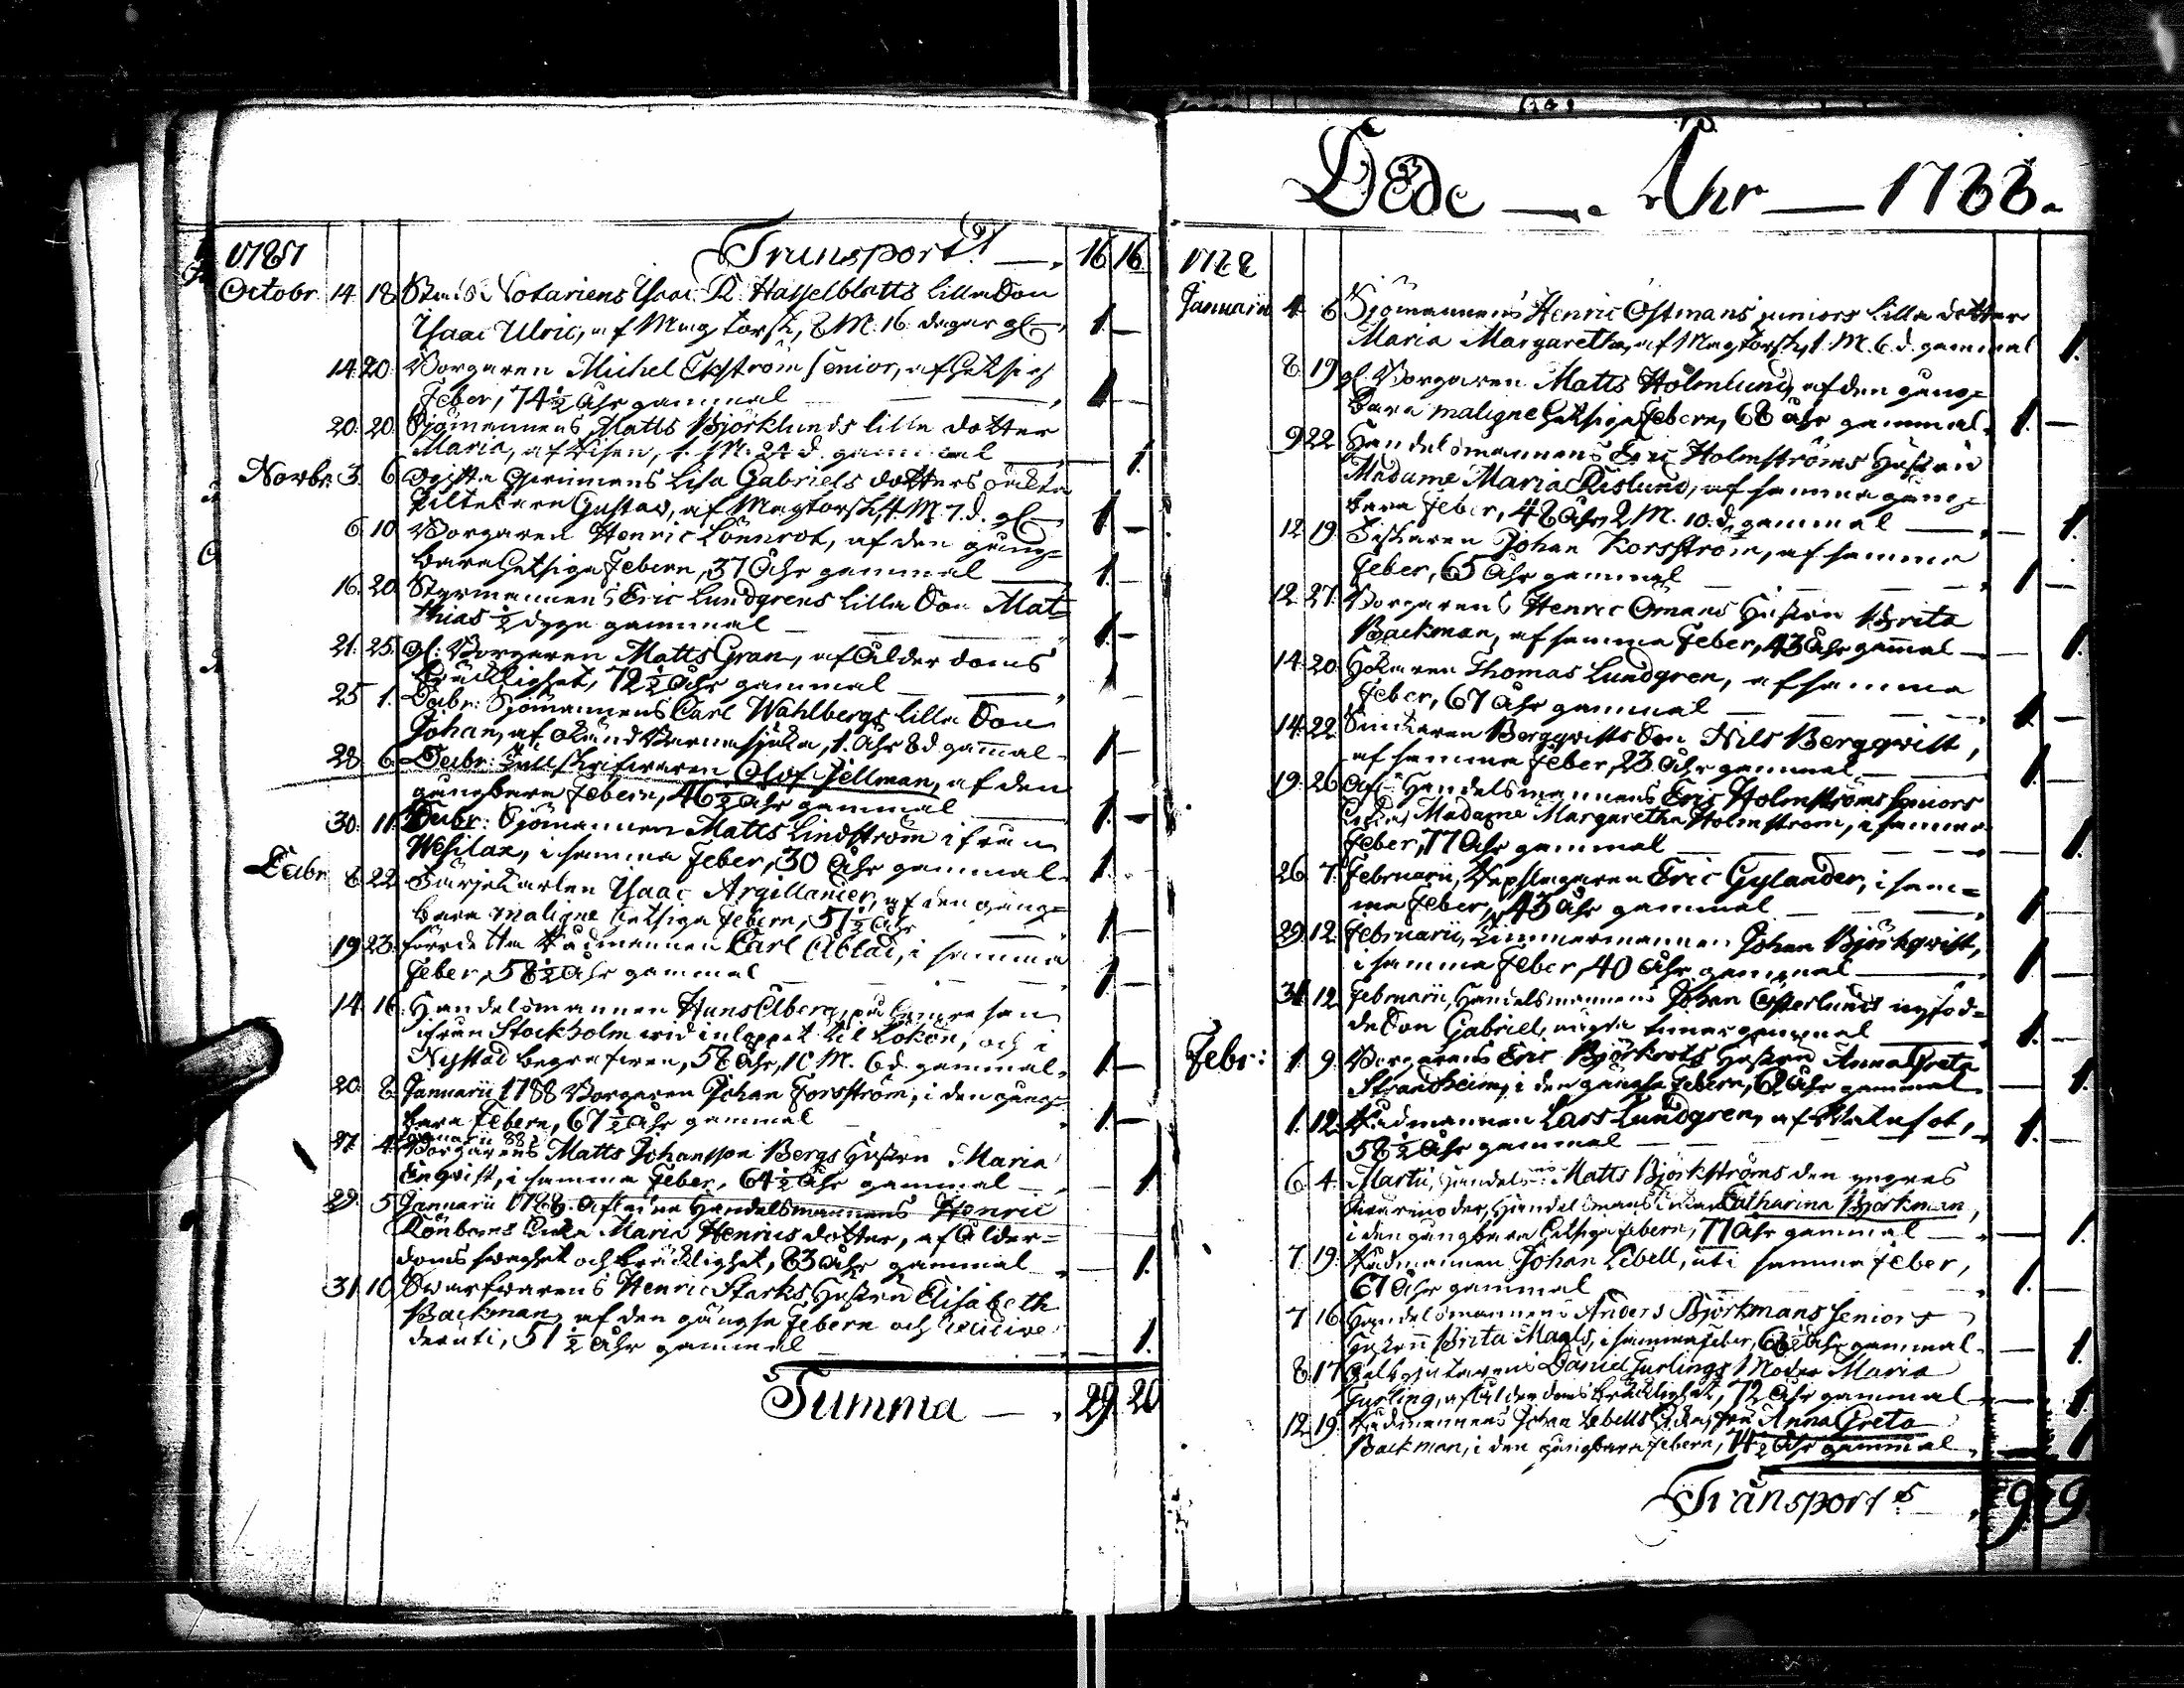 1787 Transport! 16. 16.
Octobr. 14. 18. Notariens Isaac R. Hasselblatts lilla Son
Isaac Ulric, af Magtorsk, 8 M. 16. dagar gl.— 1.—
14. 20. Borgaren Michel Ekström senior, af hetsig
Feber, 74½ Åhr gammal — 1.—
20. 20. Sjömannens Matts Björklunds lilla dotter
Maria, af Kisen, 1. M. 24 d. gammal — 1.
Novbr. 3. 6. Lisa Gabriels dotters oäkta
Piltebarn Gustav, af Magtorsk, 4. M. 7. d. gl.— 1.—
6. 10. Borgaren Henric Lönnrot, af den gång-
bara hetsiga Febern, 37 Åhr gammal — 1.—
16. 20. Styrmannens Eric Lundgrens lilla Son Mat-
thias ½ dygn gammal — 1.—
21. 25. gl: Borgaren Matts Gran, af Ålderdoms
bräcklighet, 72½ Åhr gammal — 1 —
25 1. Decbr: Sjömannens Carl Wahlbergs lilla Son
Johan, af okänd Barnasjuka, 1. Åhr 8 d. gammal 1.—
28. 6. Decbr: Olof Jellman, af den
gångbara Febern, 46½ Åhr gammal — 1.—
30. 11. Decbr: Sjömannen Matts Lindström ifrån
Wesilax, i samma Feber, 30 Åhr gammal. 1.—
Decbr. 8. 22. Färjekarlen Isaac Argillander, af den gång-
bara maligne hetsiga Febern, 51½ Åhr 1.—
19. 23. förre detta Rådmannen Carl Ablad, i samma
Feber, 58½ Åhr gammal — 1.—
14. 16. Handelsmannen Hans Alberg, på hemresan
ifrån Stockholm vid inloppet til Lökön, och i
Nystad begrafven, 58 Åhr, 10 M. 6 d. gammal. 1.—
20. 8. Januarii 1788 Borgaren Johan Forsström, i den gång-
bara Febern, 67½ Åhr gammal 1.—
27. 4. Januarii 88
Borgarens Matts Johansson Bergs Hustru Maria
Engvist, i samma Feber, 64½ Åhr gammal — 1.
29. 5. Januarii 1788. Aflidne Handelsmannens Henric
Rönbacks Enka Maria Henricsdotter, af Ålder-
doms svaghet och bräcklighet, 83 Åhr gammal — 1.
31. 10. Svarfvarens Henric Starks Hustru Elisabeth
Backman, af den gångse Febern och recidive
deruti, 51½ Åhr gammal — 1.
Summa — 29. 20
Döde — Åhr — 1788.
1788
Januarii 4. 6. Sjömannens Henric Östmans juniors lilla dotter
Maria Margaretha, af Magtorsk, 1. M. 6. d. gammal 1.
8. 19. gl. Borgaren Matts Holmlund, af den gång-
bara maligne hetsiga Febern, 68 Åhr gammal. 1.—
9. 22. Handelsmannens Eric Holmströms Hustru
Madame Maria Rislund, af samma gång-
bara Feber, 48 Åhr, 2 M. 10. d. gammal — 1.
12. 19. Fiskaren Johan Korsström, af samma
Feber, 65 Åhr gammal — 1 —
12. 27. Borgarens Henric Ömans Hustru Brita
Backman, af samma Feber, 43 Åhr gammal — 1.
14. 20. Hökaren Thomas Lundgren, af samma
Feber, 67 Åhr gammal — 1.—
14. 22. Bergqvists Son Nils Bergqvist,
af samma Feber, 23 Åhr gammal — 1.
19. 26. Afl: Handelsmannens Eric Holmströms Seniors
Enka, Madame Margaretha Holmstrom, i samma
Feber, 77 Åhr gammal — 1.
26. 7. Februarii, Repslagaren Eric Gylander, i sam-
ma Feber, 43 Åhr gammal — 1 —
29. 12. Februarii, Timmermannen Johan Björkqvist,
i samma Feber, 40 Åhr gammal — 1 —
31. 12. Februarii, Handelsmannens Johan Österlunds nyföd-
de Son Gabriel, några timar gammal — 1.—
Febr: 1. 9. Borgarens Eric Björkrots Hustru Anna Greta
Strandheim, i den gångse Febern, 62 Åhr gammal — 1.
1. 12. Rådmannen Lars Lundgren, af
58½ Åhr gammal — 1.—
6. 4. Martii, Handelsm: Matts Björkströms
Svärmoder, Handelsmans Enkan Catharina Björkman,
i den gångbara hetsiga Febern, 77 Åhr gammal — 1.
7. 19. Rådmannen Johan Lebell, uti samma Feber,
67 Åhr gammal — 1.—
7. 16. Handelsmannens Anders Björkmans Seniors
Hustru Brita Maals, i samma Feber, Åhr gammal. — 1.
8. 17. Daniel Jurlings Moder Maria
Jurling, af Ålderdoms bräcklighet, 72 Åhr gammal — 1.
12. 19. Rådmannens Johan Lebells Enka, fru Anna Greta
Backman, i den gångbara Febern, 74½ Åhr gammal — 1
Transport 9 9